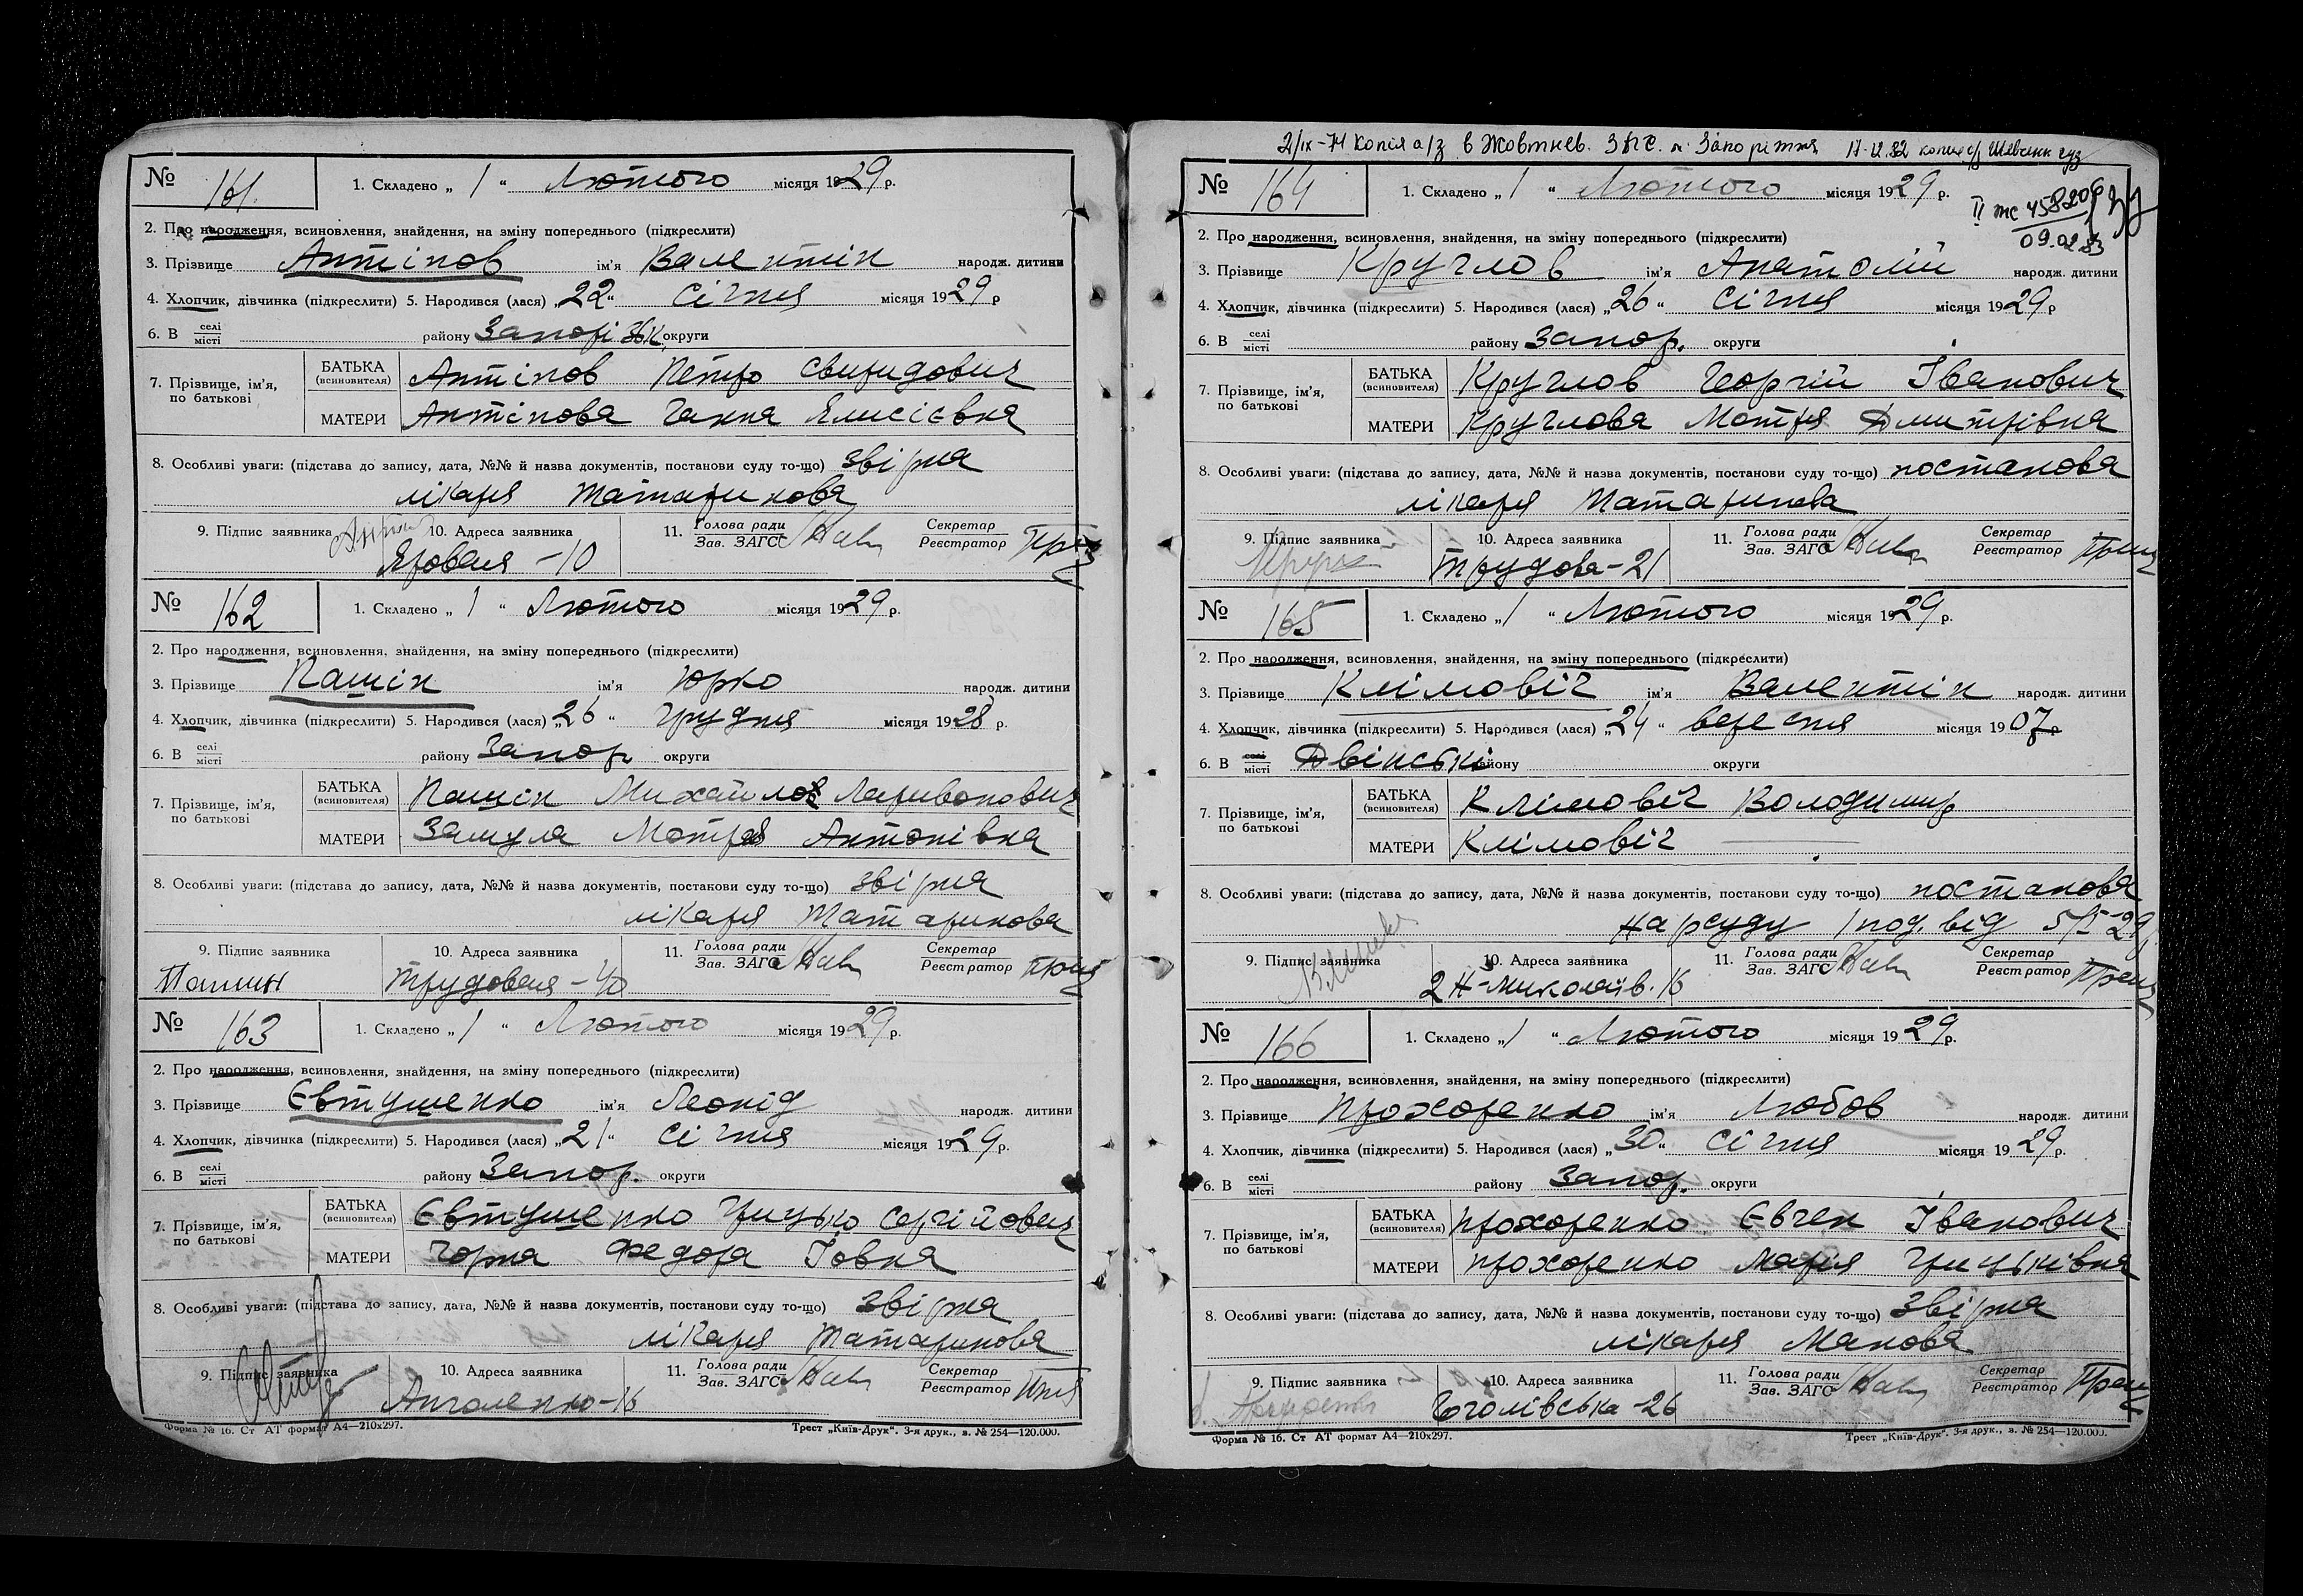 № 161. 1. Складено „ 1 “ Лютого місяця 1929 р.
2. Про народження, всиновлення, знайдення, на зміну попереднього (підкреслити)
3. Прізвище Антіпов ім'я Валентін народж. дитини
4. Хлопчик, дівчинка (підкреслити) 5. Народився (лася) „22“ Січня місяця 1929 р
6. В селі місті району Запорізьк. округи
7. Прізвище, ім'я, по батькові
БАТЬКА (всиновителя) Антіпов Петро Свиридович
МАТЕРИ Антіпова Ганна Елисієвна
8. Особливі уваги: (підстава до запису, дата, №№ й назва документів, постанови суду то-що) звірка
лікаря Татаринова
9. Підпис заявника 10. Адреса заявника 11. Голова ради Зав. ЗАГС Секретар Реєстратор
Яровая -10
№ 162 1. Складено „ 1 “ Лютого місяця 1929 р.
2. Про народження, всиновлення, знайдення, на зміну попереднього (підкреслити)
3. Прізвище Пашін ім'я Юрко народж. дитини
4. Хлопчик, дівчинка (підкреслити) 5. Народився (лася) „26“ Грудня місяця 1928 р.
6. В селі місті району Запор. округи
7. Прізвище, ім'я, по батькові
БАТЬКА (всиновителя) Пашін Михайло Ларивонович
МАТЕРИ Зашула Мотря Антонівна
8. Особливі уваги: (підстава до запису, дата, №№ й назва документів, постанови суду то-що) звірка
лікаря Татаринова
9. Підпис заявника 10. Адреса заявника 11. Голова ради Зав. ЗАГС Секретар Реєстратор
Пашин Трудовая -40
№ 163 1. Складено „ 1 “ Лютого місяця 1929 р.
2. Про народження, всиновлення, знайдення, на зміну попереднього (підкреслити)
3. Прізвище Євтушенко ім'я Леонід народж. дитини
4. Хлопчик, дівчинка (підкреслити) 5. Народився (лася) „21“ Січня місяця 1929 р.
6. В селі місті району Запор. округи
7. Прізвище, ім'я, по батькові
БАТЬКА (всиновителя) Євтушенко Грицько Сергійович
МАТЕРИ Чорна Федора Іовна
8. Особливі уваги: (підстава до запису, дата, №№ й назва документів, постанови суду то-що) звірка
лікаря Татаринова
9. Підпис заявника 10. Адреса заявника 11. Голова ради Зав. ЗАГС Секретар Реєстратор
Анголенко-16
Форма № 16. Ст АТ формат А4—210х297. Трест „Київ-Друк“. 3-я друк., в. № 254—120.000.
2/ІХ-74 копія а/з в Жовтнев. ЗАГС. м. Запоріжжя 17-12.82 копия с/з Шевченк
№ 164 1. Складено „ 1 “ Лютого місяця 1929 р.
ІІ жс 458209
09.02.83
2. Про народження, всиновлення, знайдення, на зміну попереднього (підкреслити)
3. Прізвище Круглов ім'я Анатолій народж. дитини
4. Хлопчик, дівчинка (підкреслити) 5. Народився (лася) „26“ Січня місяця 1929 р
6. В селі місті району Запор. округи
7. Прізвище, ім'я, по батькові
БАТЬКА (всиновителя) Круглов Георгій Іванович
МАТЕРИ Круглова Мотря Дмитрівна
8. Особливі уваги: (підстава до запису, дата, №№ й назва документів, постанови суду то-що) постанова
лікаря Татаринова
9. Підпис заявника 10. Адреса заявника 11. Голова ради Зав. ЗАГС Секретар Реєстратор
Трудова-21
№ 165 1. Складено „ 1 “ Лютого місяця 1929 р.
2. Про народження, всиновлення, знайдення, на зміну попереднього (підкреслити)
3. Прізвище Клімовіч ім'я Валентін народж. дитини
4. Хлопчик, дівчинка (підкреслити) 5. Народився (лася) „24“ вересня місяця 1907 р
6. В селі місті Двінські району округи
7. Прізвище, ім'я, по батькові
БАТЬКА (всиновителя) Клімовіч Володимир
МАТЕРИ Клімовіч —
8. Особливі уваги: (підстава до запису, дата, №№ й назва документів, постанови суду то-що) постанова
нарсуду 1 под. від 5/І-29
9. Підпис заявника 10. Адреса заявника 11. Голова ради Зав. ЗАГС Секретар Реєстратор
2 Н-Миколаїв. 16
№ 166 1. Складено „ 1 “ Лютого місяця 1929 р.
2. Про народження, всиновлення, знайдення, на зміну попереднього (підкреслити)
3. Прізвище Прохоренко ім'я Любов народж. дитини
4. Хлопчик, дівчинка (підкреслити) 5. Народився (лася) „30“ Січня місяця 1929 р.
6. В селі місті району Запор. округи
7. Прізвище, ім'я, по батькові
БАТЬКА (всиновителя) Прохоренко Євген Іванович
МАТЕРИ Прохоренко Марія Грицьківна
8. Особливі уваги: (підстава до запису, дата, №№ й назва документів, постанови суду то-що) звірка
лікаря Манова
9. Підпис заявника 10. Адреса заявника 11. Голова ради Зав. ЗАГС Секретар Реєстратор
Гоголівська-26
Форма № 16. Ст АТ формат А4—210х297. Трест „Київ-Друк“. 3-я друк., в. № 254—120.000.